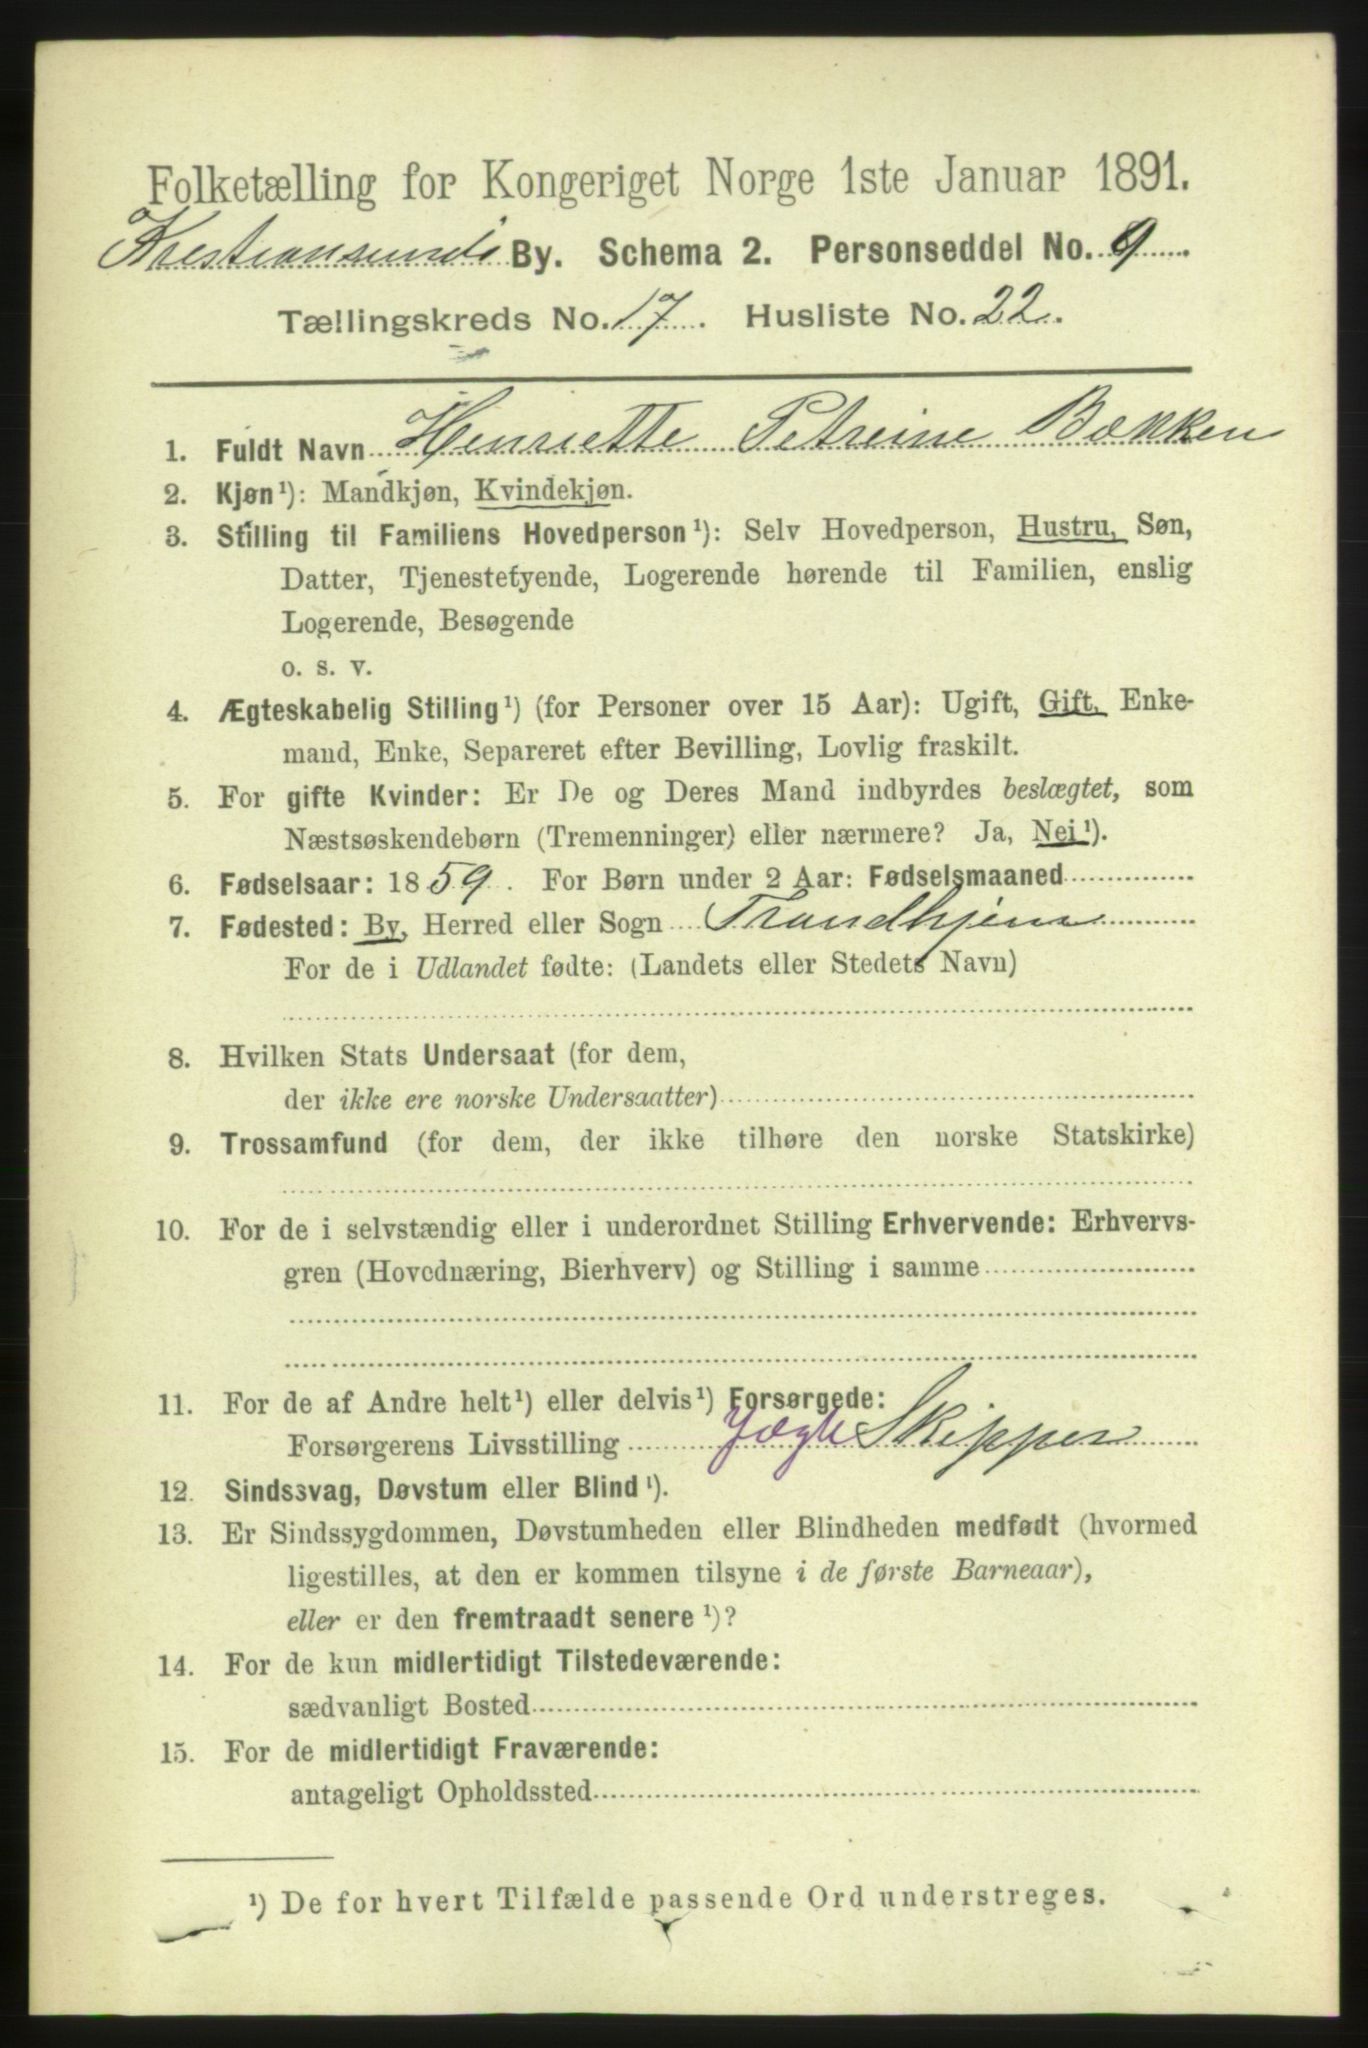 Folketælling for Kongeriget Norge 1ste Januar 1891.
Kristiansunds By. Schema 2. Personseddel No. 9
Tællingskreds No. 17. Husliste No. 22.
1. Fuldt Navn Henriette Petreine Bækken
2. Kjøn¹): Mandkjøn, Kvindekjøn.
3. Stilling til Familiens Hovedperson¹): Selv Hovedperson, Hustru, Søn,
Datter, Tjenestetyende, Logerende hørende til Familien, enslig
Logerende, Besøgende
o. s. v.
4. Ægteskabelig Stilling¹) (for Personer over 15 Aar): Ugift, Gift, Enke-
mand, Enke, Separeret efter Bevilling, Lovlig fraskilt.
5. For gifte Kvinder: Er De og Deres Mand indbyrdes beslægtet, som
Næstsøskendebørn (Tremenninger) eller nærmere? Ja, Nei¹).
6. Fødselsaar: 1859. For Børn under 2 Aar: Fødselsmaaned
7. Fødested: By, Herred eller Sogn Trondhjem
For de i Udlandet fødte: (Landets eller Stedets Navn)
8. Hvilken Stats Undersaat (for dem,
der ikke ere norske Undersaatter)
9. Trossamfund (for dem, der ikke tilhøre den norske Statskirke)
10. For de i selvstændig eller i underordnet Stilling Erhvervende: Erhvervs-
gren (Hovednæring, Bierhverv) og Stilling i samme
11. For de af Andre helt¹) eller delvis¹) Forsørgede:
Forsørgerens Livsstilling Jægte Skipper
12. Sindssvag, Døvstum eller Blind¹).
13. Er Sindssygdommen, Døvstumheden eller Blindheden medfødt (hvormed
ligestilles, at den er kommen tilsyne i de første Barneaar),
eller er den fremtraadt senere¹)?
14. For de kun midlertidigt Tilstedeværende:
sædvanligt Bosted
15. For de midlertidigt Fraværende:
antageligt Opholdssted
¹) De for hvert Tilfælde passende Ord understreges.